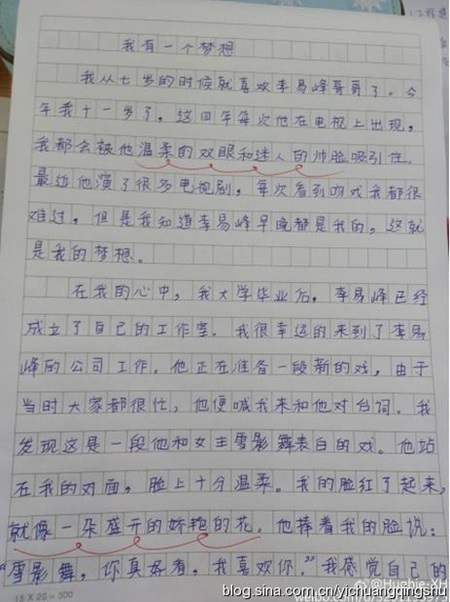 我有一个梦想
我从七岁的时候就喜欢李易峰哥哥了。今
年我十一岁了。这四年每次他在电视上出现，
我都会被他温柔的双眼和迷人的帅脸吸引住。
最近他演了很多电视剧，每次看到吻戏我都很
难过，但是我知道李易峰早晚都是我的，这就
是我的梦想。
在我的心中，我大学毕业后，李易峰已经
成立了自己的工作室，我很幸运的来到了李易
峰的公司工作。他正在准备一段新的戏，由于
当时大家都很忙，他便喊我来和他对台词。我
发现这是一段他和女主雪影舞表白的戏。他站
在我的对面，脸上十分温柔。我的脸红了起来，
就像一朵盛开的娇艳的花。他捧着我的脸说：
“雪影舞，你真好看，我喜欢你。”我感觉自己的
15 X 20 = 300
blog.sina.com.cn/yichuangqingshu